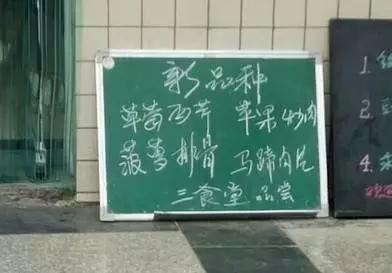 新品种
草莓西芹 苹果炒肉
菠萝排骨 马蹄肉片
三食堂 品尝
1.
4.